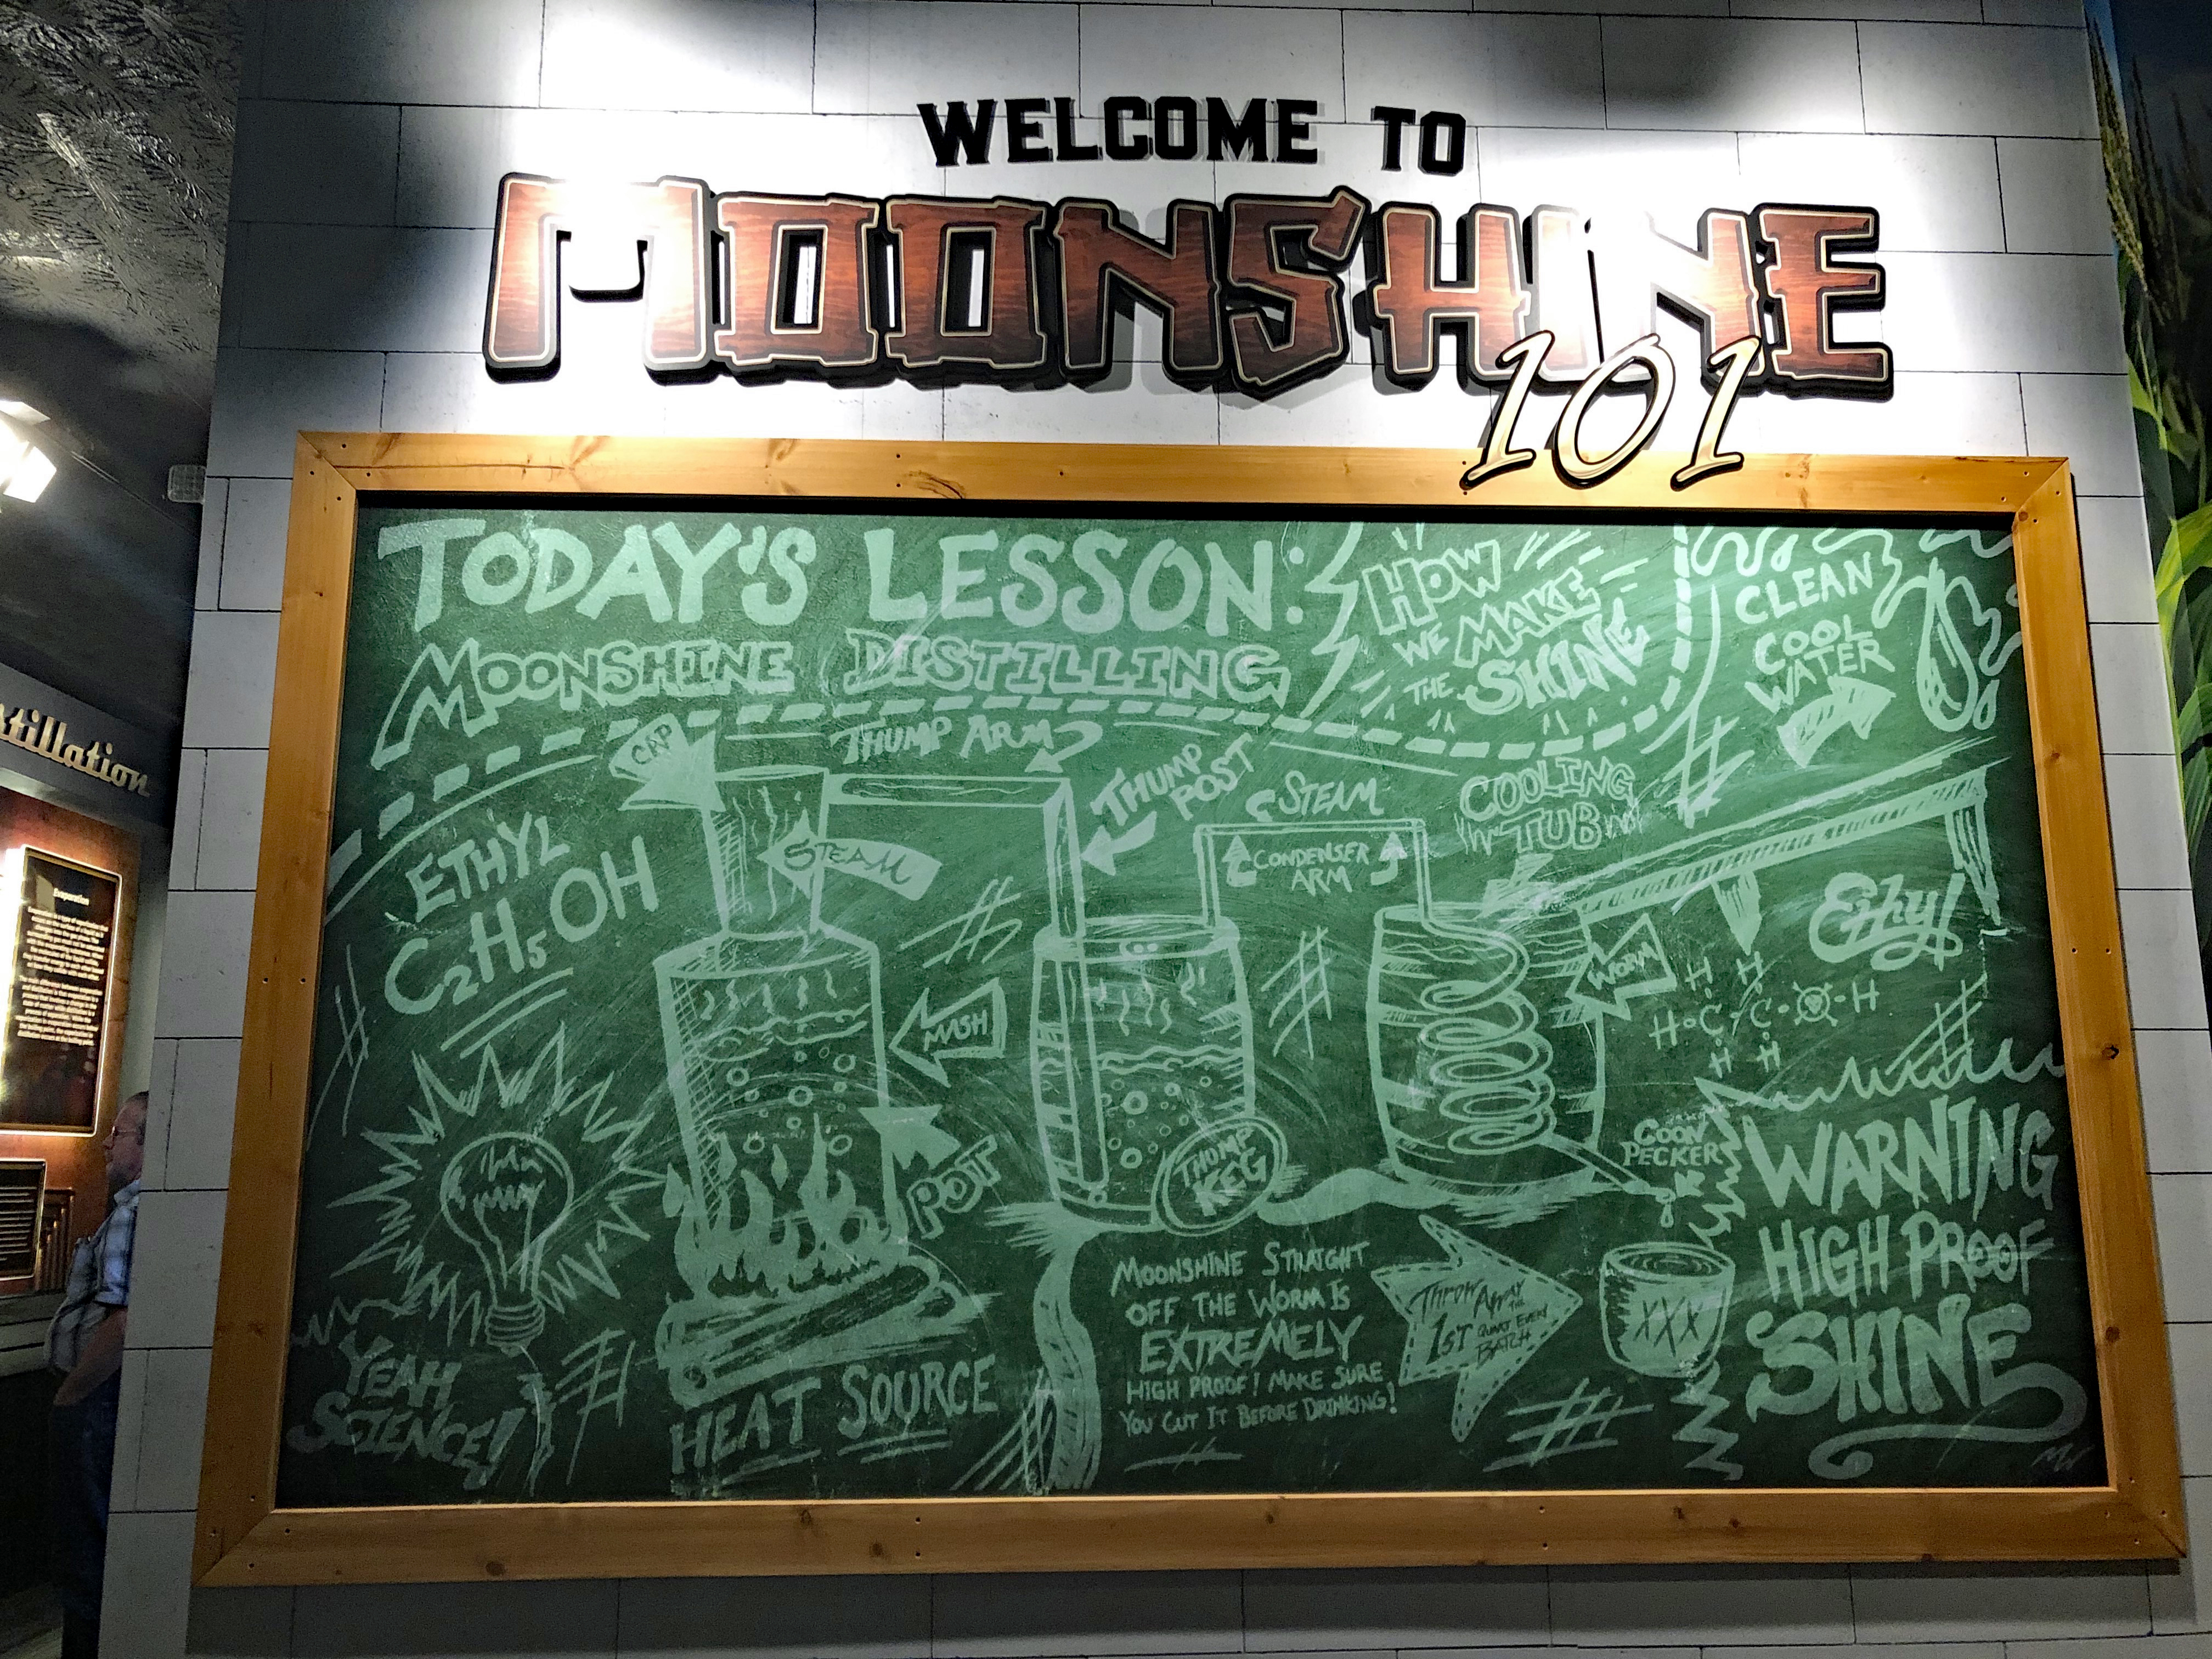 WELCOME TO
MOONSHINE
101
TODAY'S LESSON:
MOONSHINE DISTILLING
HOW
WE MAKE
THE SHINE
CLEAN
COOL
WATER
CAP
THUMP ARM
THUMP
POST
STEAM
COOLING
TUB
ETHYL
C2H5OH
STEAM
CONDENSER
ARM
Ethy!
WORM
H H
H C C H
H H
MASH
POT
THUMP
KEG
COON
PECKER
WARNING
HIGH PROOF
SHINE
MOONSHINE STRAIGHT
OFF THE WORM IS
EXTREMELY
HIGH PROOF! MAKE SURE
YOU CUT IT BEFORE DRINKING!
THROW AWAY THE
1ST QUART EVERY
BATCH
XXX
YEAH
SCIENCE!
HEAT SOURCE
MW
stillation
Evaporation